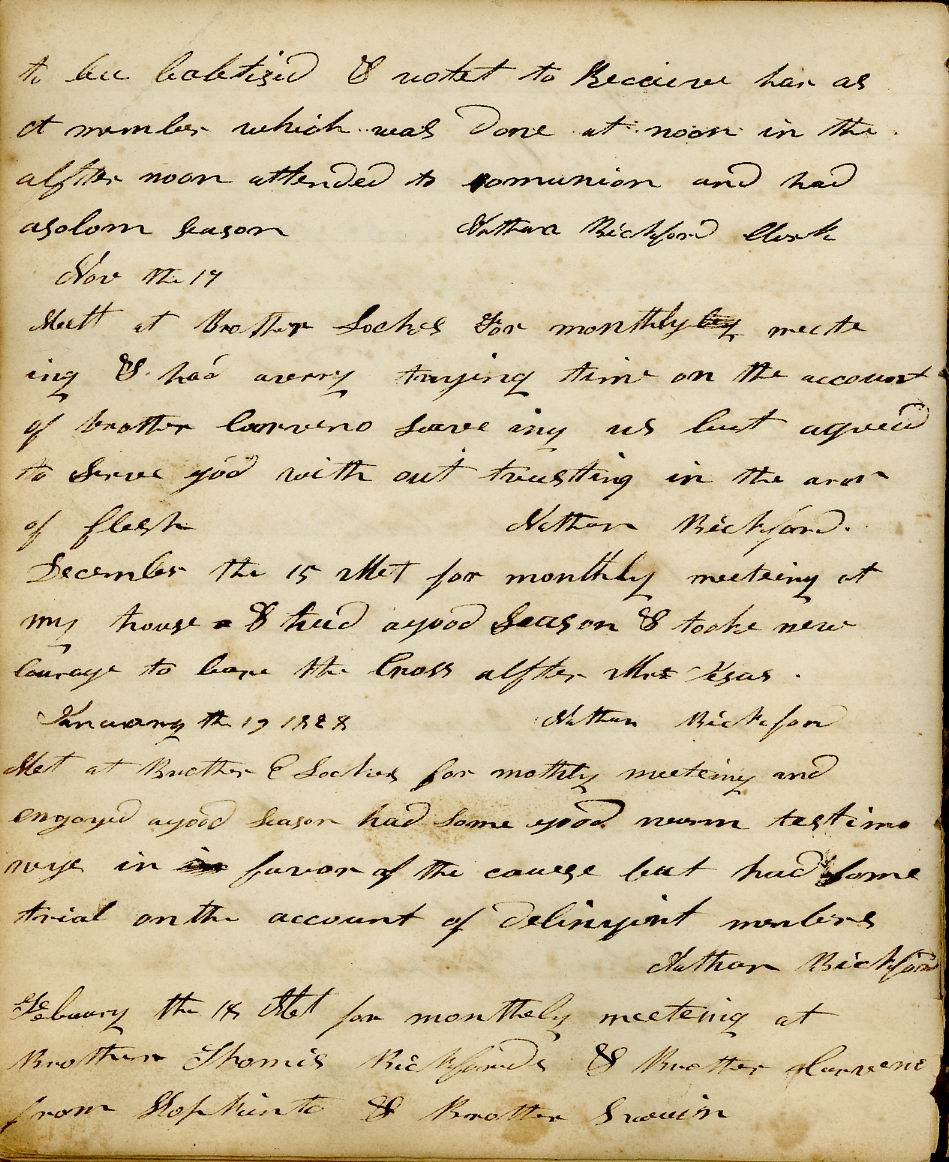 to be babtised & votet to Receive har as
a member which was Done at noon in the
alfter noon attended to comunion and had
asolom season Nathan Bickford Clerk
Nov the 17
Meett at Brother Lockes For monthly meete
ing & had averry trying time on the account
of brother Carveno leaveing us but agreed
to Serve god with out trusting in the arm
of flesh Nathan Bickford.
December the 15 Met for monthly meeteing at
my house & had agood Season & tooke new
Courage to bare the Cross alfter
January the 19 1828 Nathan Bickford
Met at Brother E Lockes for mothly meeteing and
engoyed agood season had some good warm testimo
nye in favor of the cause but had some
trial on the account of delinquint members
Nathan Bickford
Febuary the 18 Met for monthely meeteing at
Brother Thomis Bickfords & Brother Carveno
from Hopkinto & Brother